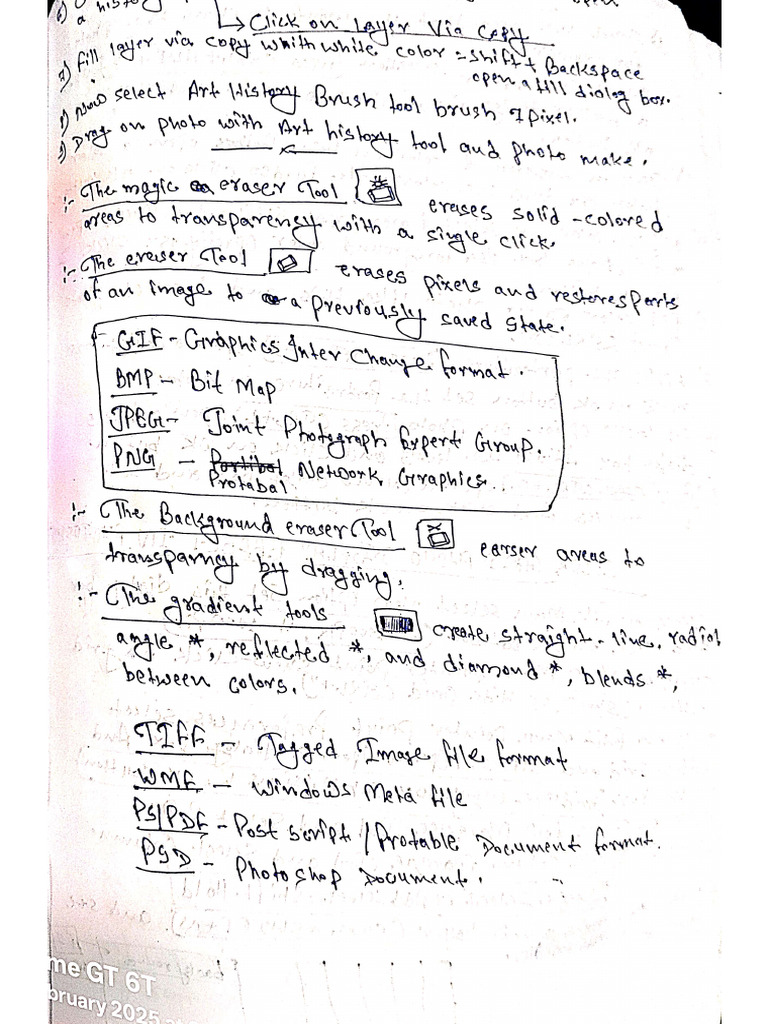 6) a history open
↳ Click on Layer Via Copy
7) fill layer via copy whith white color = Shift + Backspace
open a fill dialog box.
8) Now select Art History Brush tool brush 7 pixel.
9) Drag on photo with Art history tool and photo make.
:- The magic eraser Tool erases solid-colored
areas to transparency with a single click.
:- The eraser Tool erases pixels and restores parts
of an image to a previously saved state.
- GIF - Graphics Inter Change format.
BMP - Bit Map
JPEG - Joint Photograph Expert Group.
PNG - Portibal Network Graphics.
Protabal
:- The Background eraser Tool earser areas to
transparncy by dragging.
:- The gradient tools create straight-line, radial
angle *, reflected *, and diamond *, blends *,
between colors.
TIFF - Tagged Image file format
WMF - Windows Meta file
PS/PDF - Post script / Protable Document format.
PSD - Photoshop Document.
me GT 6T
bruary 2025